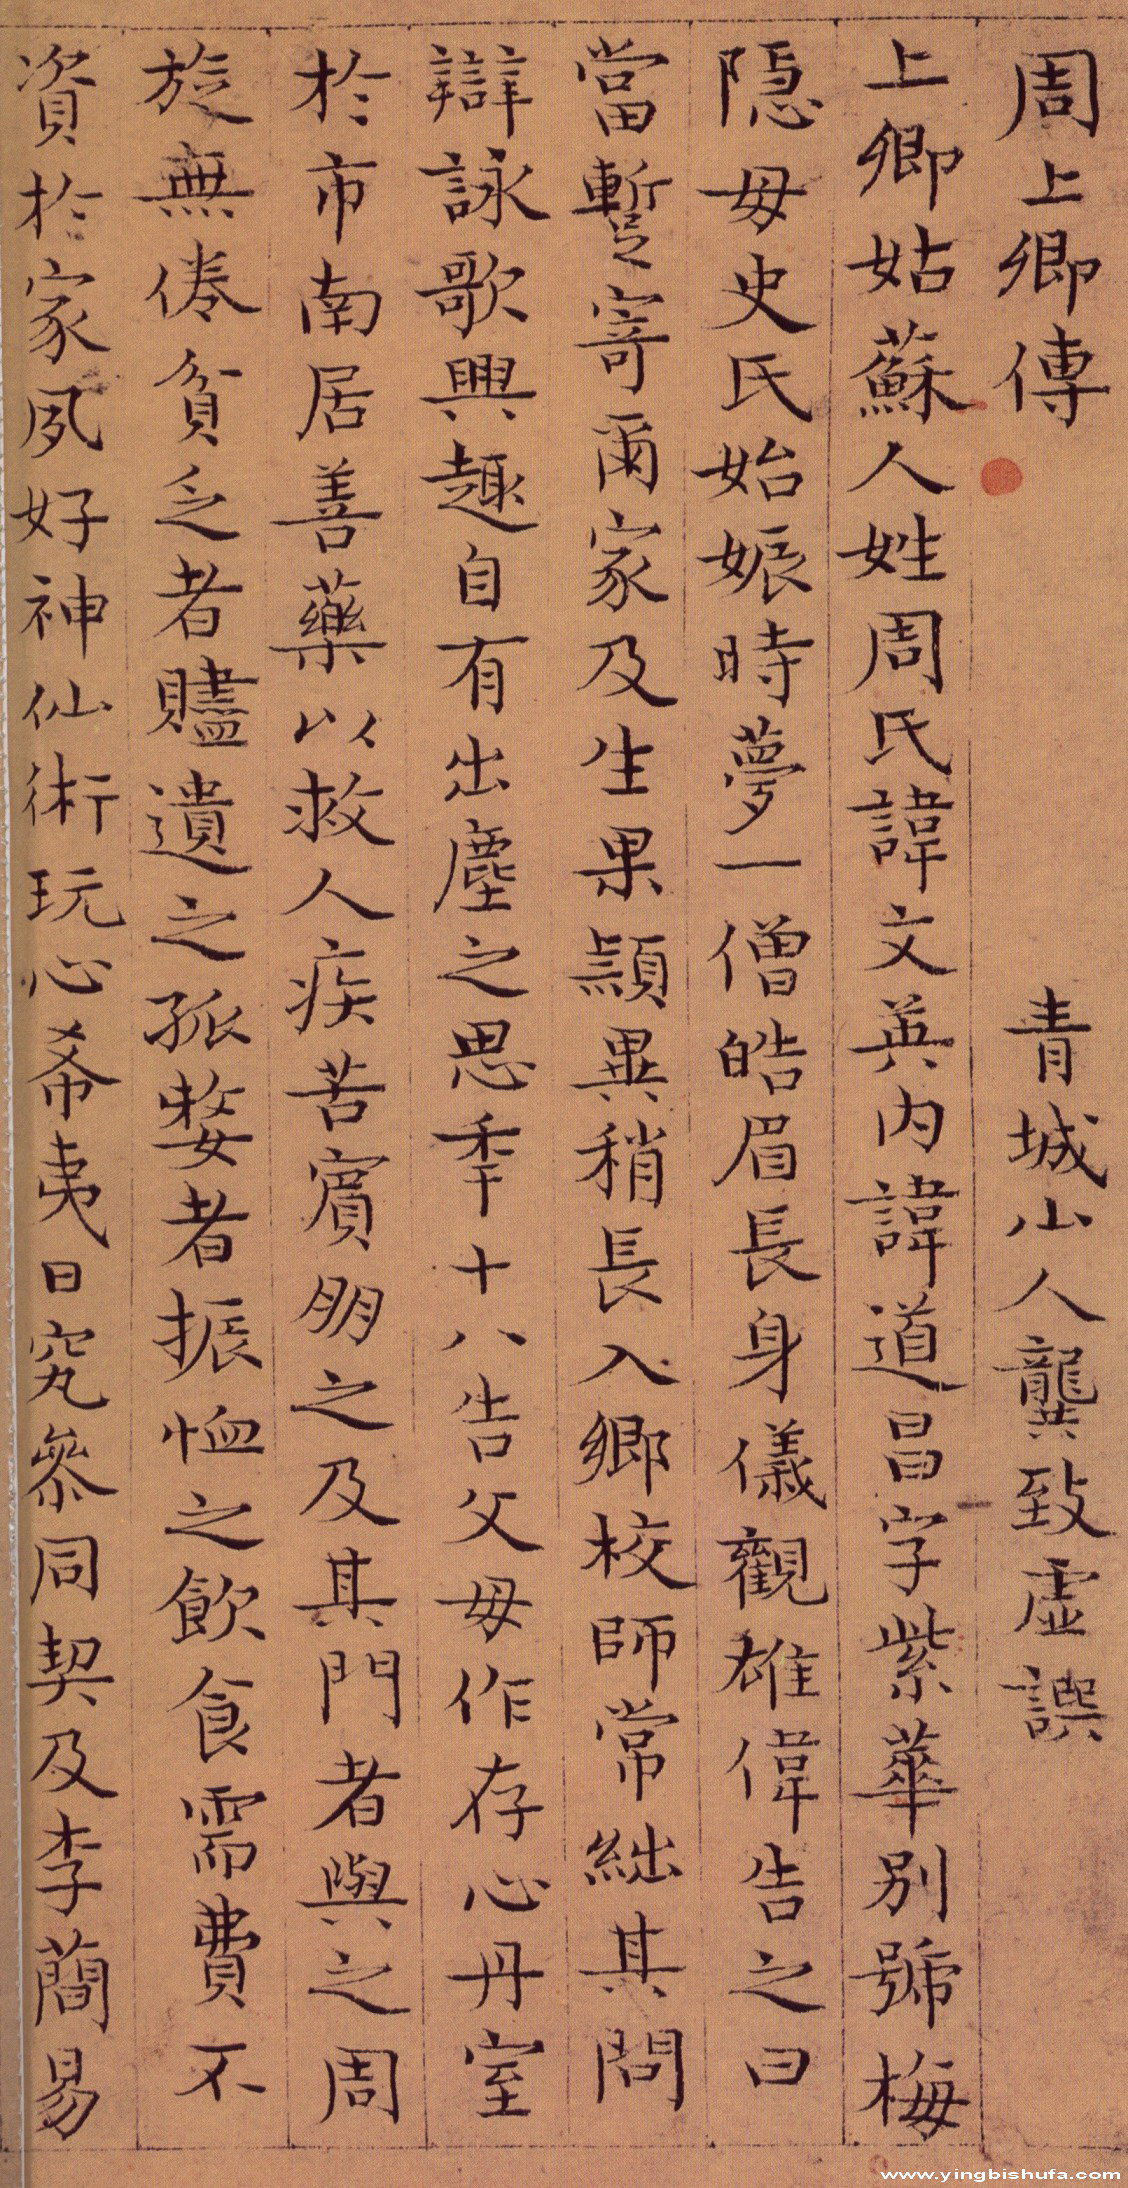 周上卿傳 青城山人龔致虛譔
上卿姑蘇人姓周氏諱文英内諱道昌字紫華別號梅
隱母史氏始娠時夢一僧皓眉長身儀觀雄偉告之曰
當蹔寄爾家及生果穎異稍長入鄉校師常絀其問
辯詠歌興趣自有出塵之思年十八告父母作存心丹室
於市南居善藥以救人疾苦賓朋之及其門者與之周
旋無倦貧乏者贐遺之孤嫠者振恤之飲食需費不
資於家夙好神仙術玩心希夷日究參同契及李簡易
www.yingbishufa.com